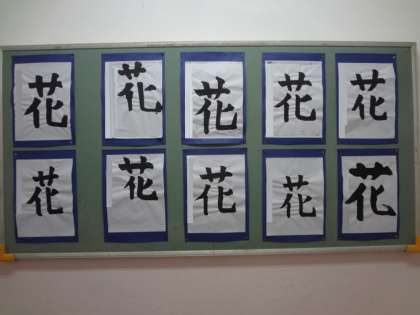 花 花 花 花 花
花 花 花 花 花